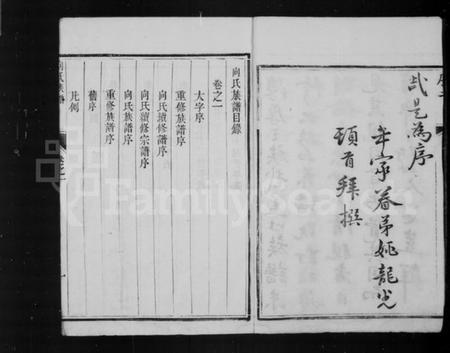 哉是為序
年家眷弟姚龍光
頓首拜撰
向氏族譜目錄
卷之一
大字序
重修族譜序
向氏續修譜序
向氏續修宗譜序
向氏族譜序
重修族譜序
舊序
凡例
向氏族譜
FamilySearch